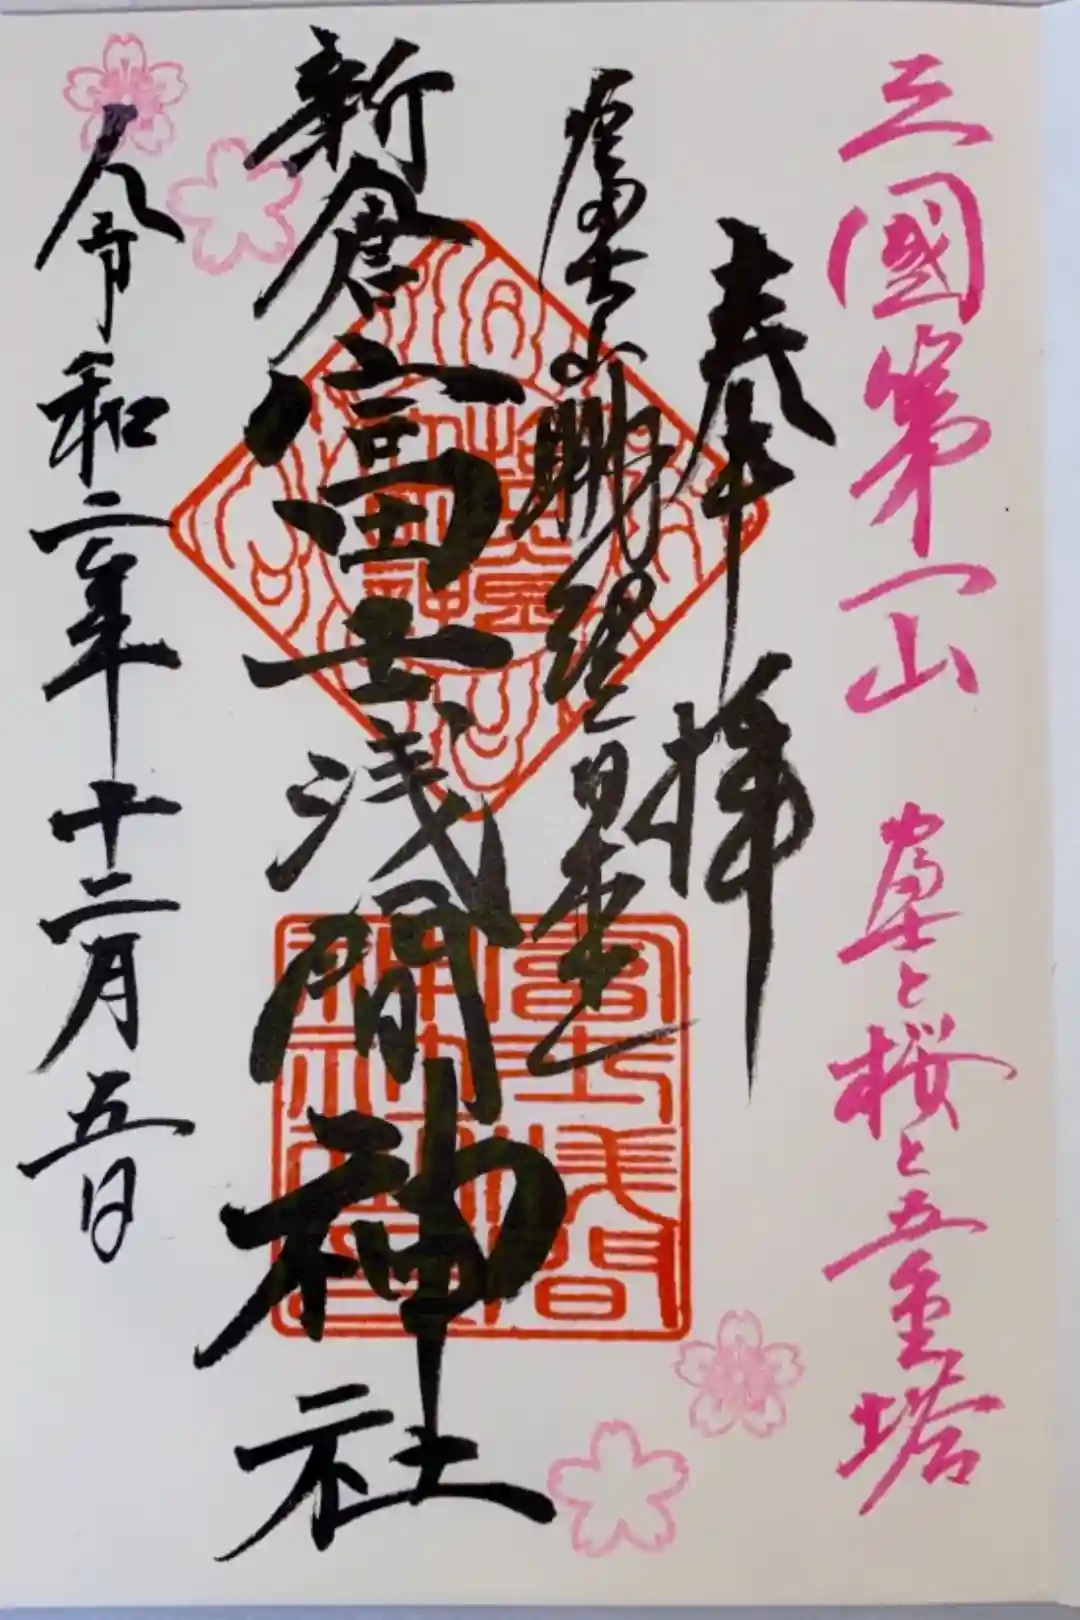 三國第一山 富士と桜と五重塔
奉拝
富士山眺望日本一
新倉富士浅間神社
富士浅間
神社
令和二年十二月五日